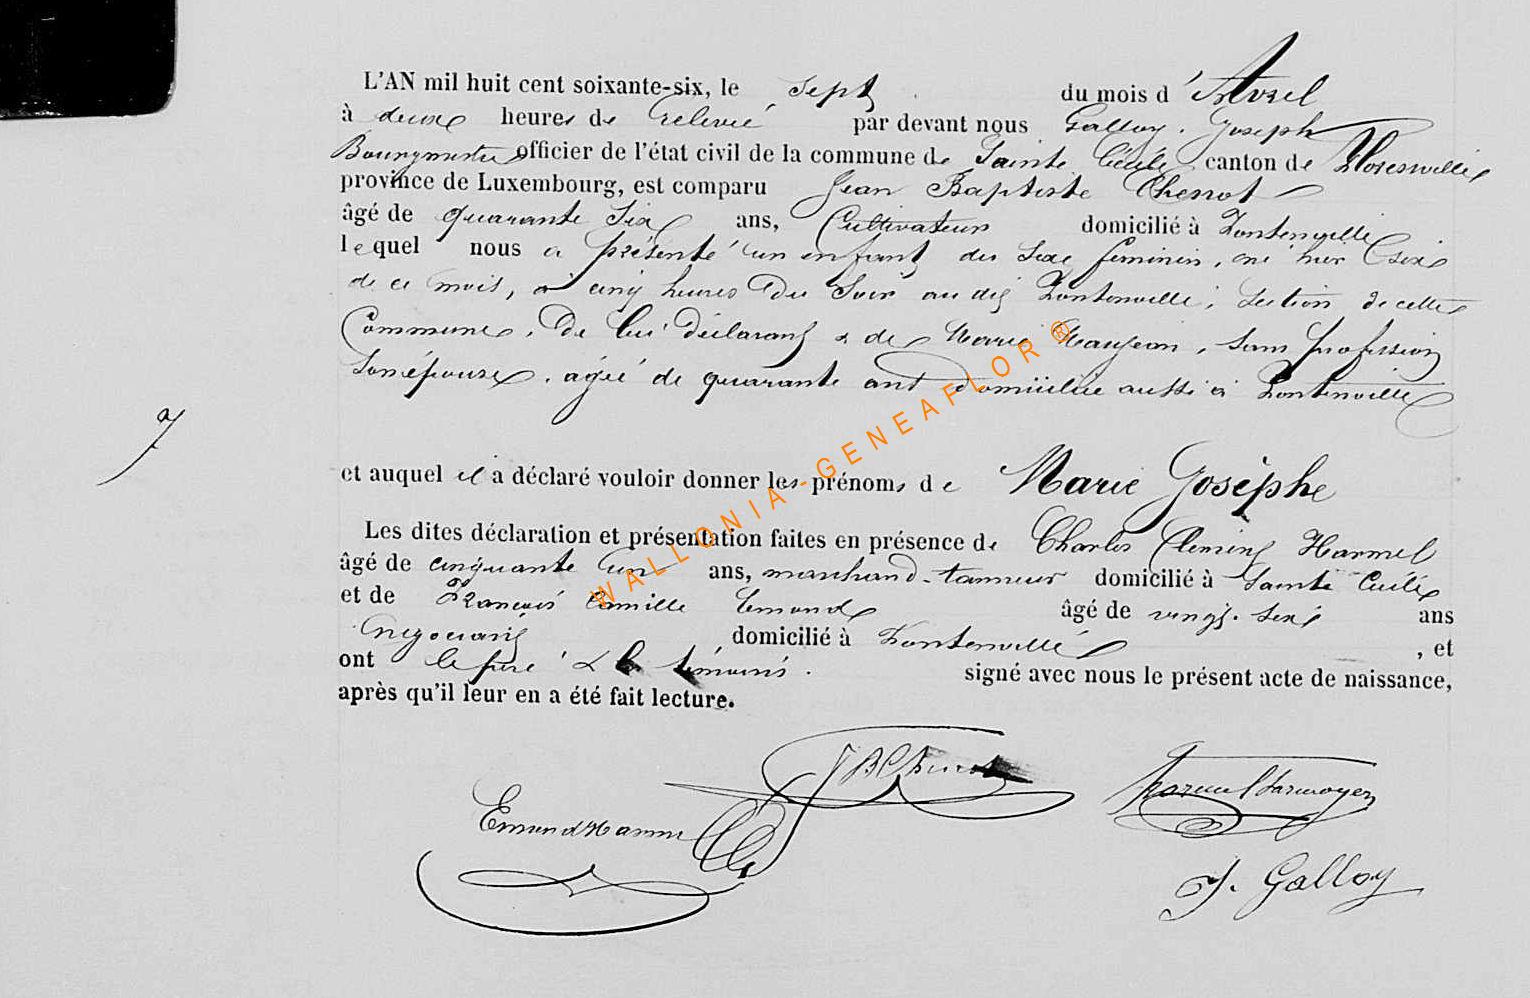 L'AN mil huit cent soixante-six, le sept du mois d'Avril
à deux heures de relevée par devant nous Galloy. Joseph
Bourgmestre officier de l'état civil de la commune de Sainte Cécile canton de Florenville
province de Luxembourg, est comparu Jean Baptiste Chenot
âgé de quarante six ans, Cultivateur domicilié à Fontenoille
lequel nous a présenté un enfant du sexe féminin, né hier six
de ce mois, à cinq heures du soir au dit Fontenoille, section de cette
Commune, De lui déclarant & de Marie Maujean, sans profession
son épouse, agée de quarante ans domiciliée aussi à Fontenoille
et auquel il a déclaré vouloir donner les prénoms de Marie Josèphe
Les dites déclaration et présentation faites en présence de Charles Clement Harmel
âgé de cinquante un ans, marchand-tanneur domicilié à Sainte Cécile
et de François Camille Emond âgé de vingt-six ans
Négociant domicilié à Fontenoille, et
ont le père & les témoins. signé avec nous le présent acte de naissance,
après qu'il leur en a été fait lecture.
WALLONIA-GENEAFLOR®
JB Chenot
Emond
J. Galloy